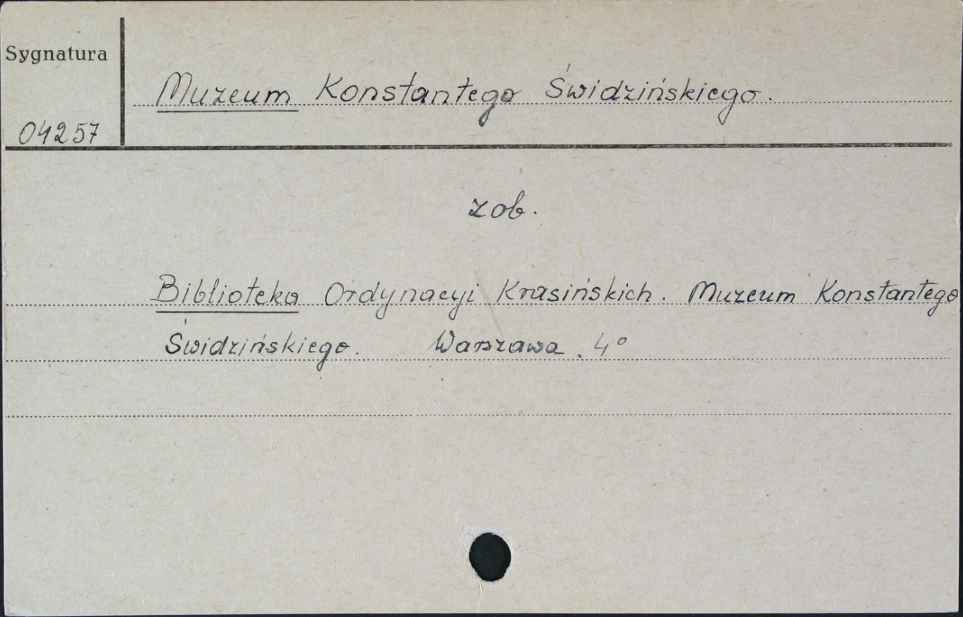 Sygnatura
Muzeum Konstantego Świdzińskiego.
04257
zob.
Biblioteka Ordynacyi Krasińskich. Muzeum Konstantego
Świdzińskiego. Warszawa. 4°